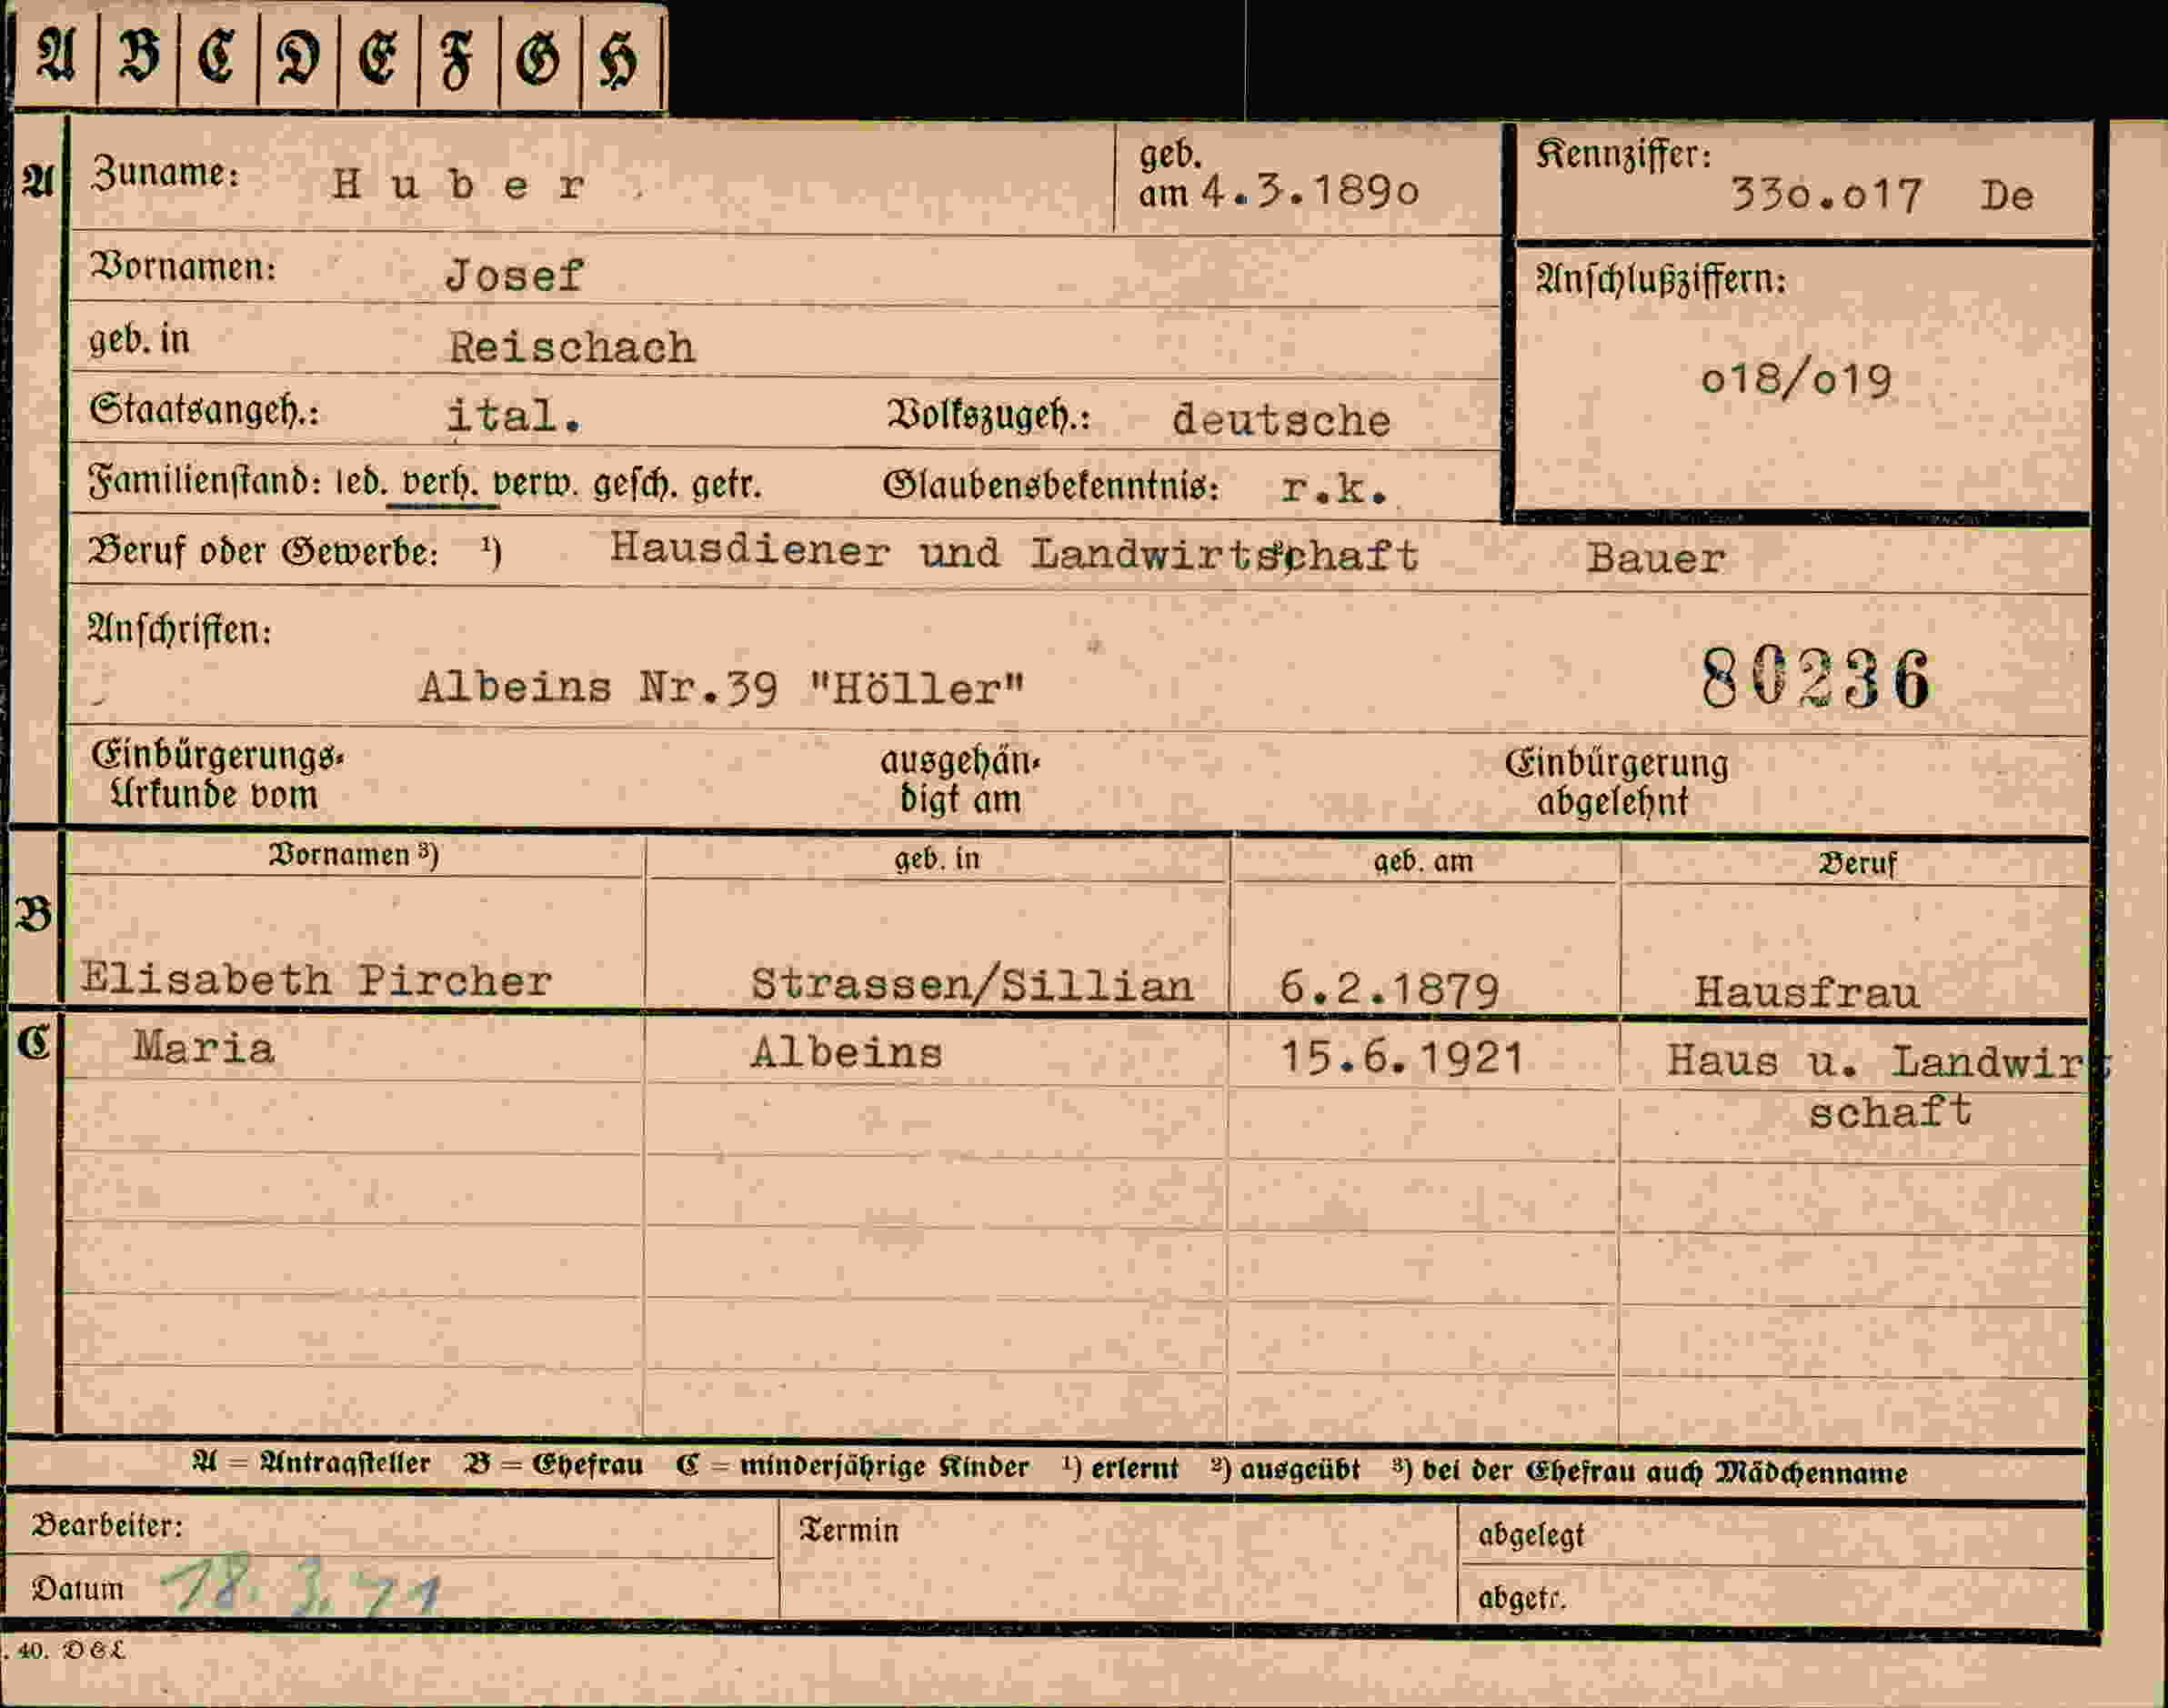 A B C D E F G H
A Zuname: Huber geb. am 4.3.1890 Kennziffer: 330.017 De
Vornamen: Josef
Anschlußziffern:
geb. in Reischach
018/019
Staatsangeh.: ital. Volkszugeh.: deutsche
Familienstand: led. verh. verw. gesch. getr. Glaubensbekenntnis: r.k.
Beruf oder Gewerbe: ¹) Hausdiener und Landwirtschaft Bauer
Anschriften:
Albeins Nr.39 "Höller" 80236
Einbürgerungs- ausgehän- Einbürgerung
Urkunde vom digt am abgelehnt
Vornamen ³) geb. in geb. am Beruf
B
Elisabeth Pircher Strassen/Sillian 6.2.1879 Hausfrau
C Maria Albeins 15.6.1921 Haus u. Landwirt
schaft
A = Antragsteller B = Ehefrau C = minderjährige Kinder ¹) erlernt ²) ausgeübt ³) bei der Ehefrau auch Mädchenname
Bearbeiter: Termin abgelegt
Datum 18. 3. 71 abgetr.
. 40. D&L